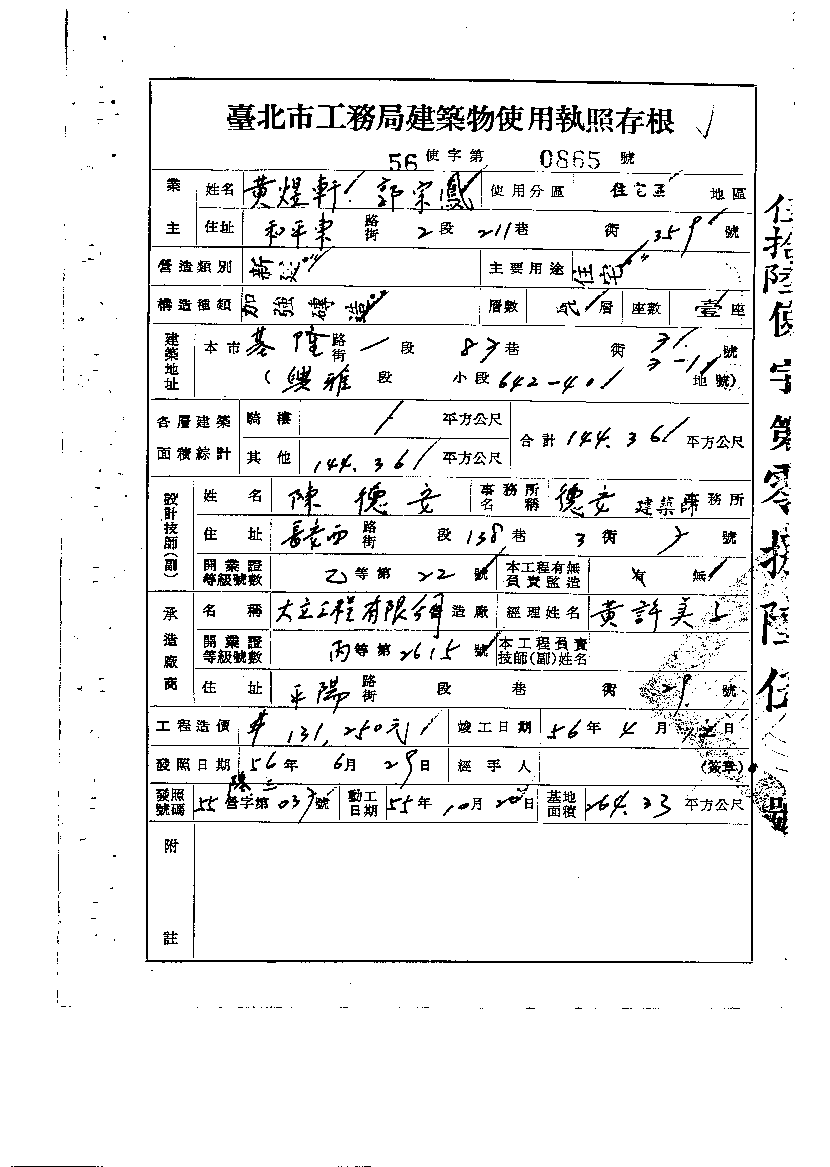 臺北市工務局建築物使用執照存根
56 使字第 0865 號
業主 姓名 黃煜軒 郭宗鳳 使用分區 住宅區 地區
住址 和平東 路街 2 段 211 巷 衖 359 號
營造類別 新建 主要用途 住宅
構造種類 加強磚造 層數 貳層 座數 壹座
建築地址 本市 基隆 路街 一 段 83 巷 衖 號
(興雅 段 小段 642-40 地號)
各層建築面積綜計 騎樓 / 平方公尺 合計 144.36 平方公尺
其他 144.36 平方公尺
設計技師(副) 姓名 陳德安 事務所名稱 德安建築師事務所
住址 長安西 路街 段 138 巷 3 衖 號
開業證等級號數 乙等第 22 號 本工程有無負責監造 有 無
承造廠商 名稱 大立工程有限公司 營造廠 經理姓名 黃許美
開業證等級號數 丙等第 2615 號 本工程負責技師(副)姓名
住址 平陽 路街 段 巷 衖 29 號
工程造價 131,250元 竣工日期 56年 4月 日
發照日期 56年 6月 29日 經手人 (簽章)
發照號碼 55 營字第 號 動工日期 55年 10月 20日 基地面積 264.33 平方公尺
附註
伍拾陸使字第零捌陸伍號